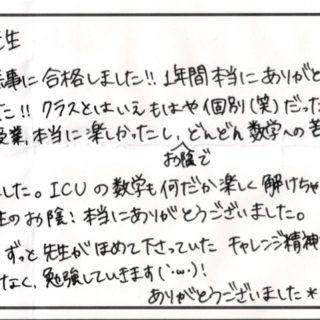 先生
無事に合格しました!! 1年間本当にありがと
た!! クラスとはいえもはや個別(笑)だった
授業、本当に楽しかったし、どんどん数学への苦
お陰で
した。ICUの数学も何だか楽しく解けちゃ
生のお陰! 本当にありがとうございました。
ずっと先生がほめて下さっていた チャレンジ精神
なく、勉強していきます(`･ω･)!
ありがとうございました*